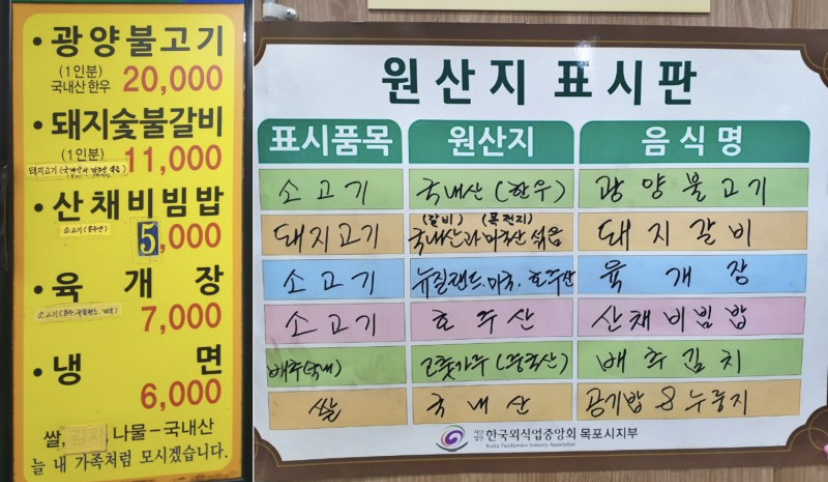 • 광양불고기
(1인분)
국내산한우 20,000
• 돼지숯불갈비
(1인분) 11,000
돼지고기(국내산과 미국산 섞음)
• 산채비빔밥
소고기(호주산)
5,000
• 육개장
7,000
• 냉면
6,000
쌀, 김치, 나물-국내산
늘 내 가족처럼 모시겠습니다.
원산지 표시판
표시품목 원산지 음식명
소고기 국내산(한우) 광양불고기
(갈비) (목전지)
돼지고기 국내산과 미국산 섞음 돼지갈비
소고기 뉴질랜드.미국.호주산 육개장
소고기 호주산 산채비빔밥
배추(국내) 고춧가루(중국산) 배추김치
쌀 국내산 공기밥 & 누룽지
사단법인 한국외식업중앙회 목포시지부
Korea Foodservice Industry Association